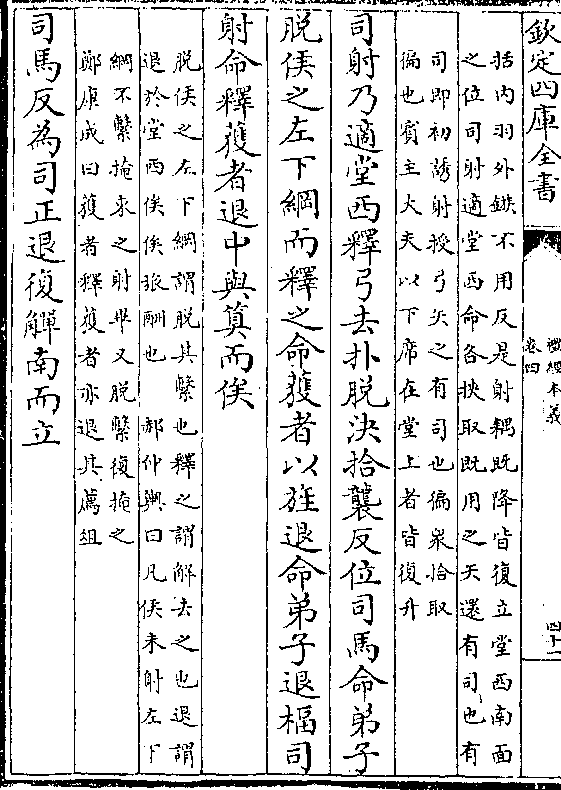 欽定四庫全書
禮經本義
卷四
四十一
括内羽外鏃不用反是射耦既降皆復立堂西南面
之位司射適堂西命各拱取既用之矢還有司也有
司即初誘射授弓矢之有司也徧衆拾取
徧也賓主大夫以下席在堂上者皆復升
司射乃適堂西釋弓去扑脱決拾襲反位司馬命弟子
脱侯之左下綱而釋之命獲者以旌退命弟子退楅司
射命釋獲者退中與算而俟
脱侯之左下綱謂脱其繫也釋之謂解去之也退謂
退於堂西俟俟旅酬也 郝仲輿曰凡侯未射左下
綱不繫掩束之射畢又脱繫復掩之
鄭康成曰獲者釋獲者亦退其薦俎
司馬反為司正退復觶南而立